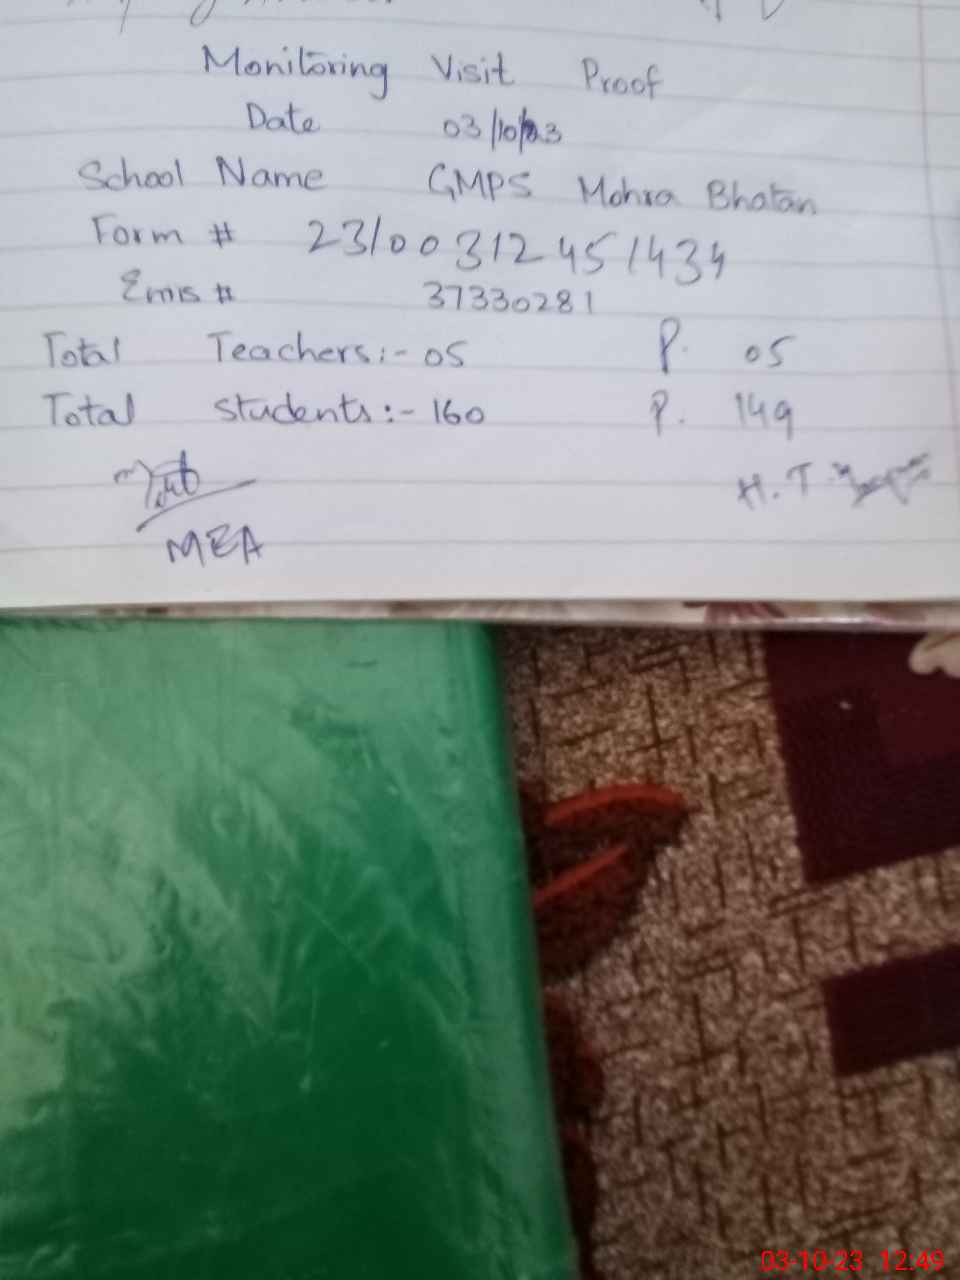 Monitoring Visit Proof
Date 03/10/23
School Name GMPS Mohra Bhatan
Form # 23100312451434
Emis # 37330281
Total Teachers:- 05 P. 05
Total students:- 160 P. 149
MEA H.T.
03-10-23 12:49